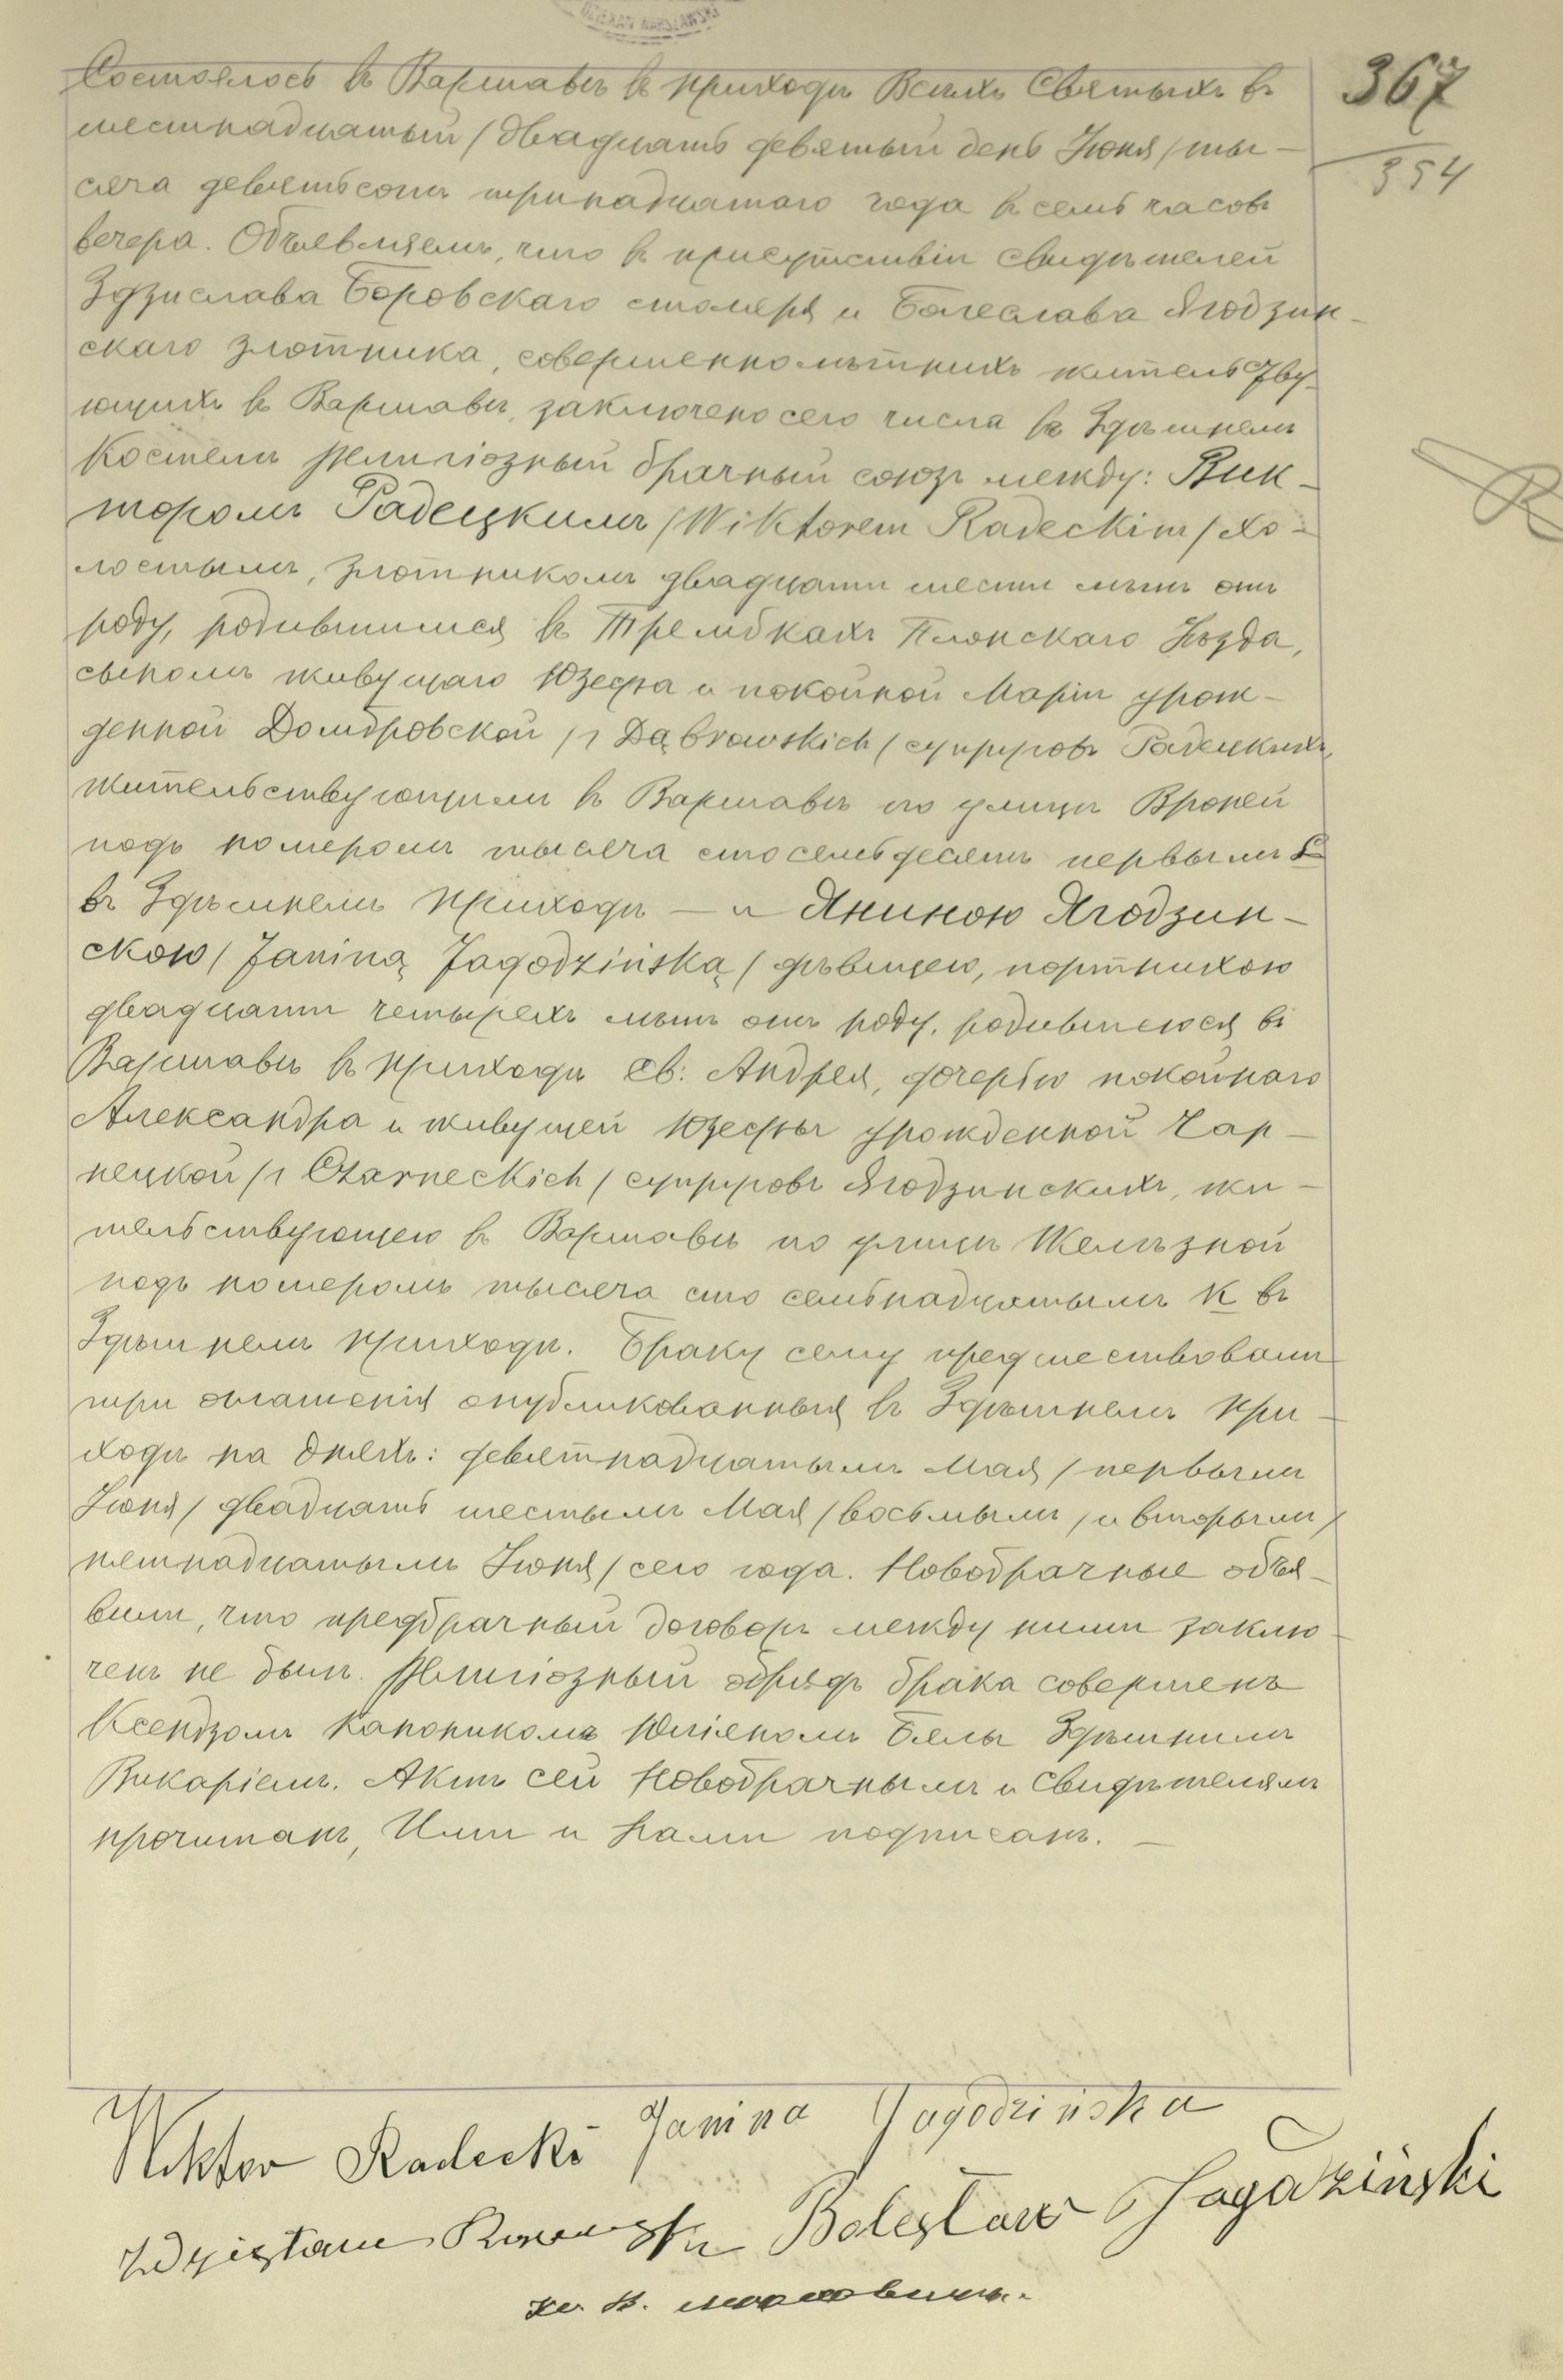 367
354
Состоялось въ Варшавѣ въ приходѣ Всѣхъ Святыхъ въ
шестнадцатый / двадцать девятый день Іюня / ты-
сяча девятьсотъ тринадцатаго года въ семь часовъ
вечера. Объявляемъ, что въ присутствіи свидѣтелей
Здзислава Боровскаго столяра и Болеслава Ягодзин-
скаго злотника, совершеннолѣтнихъ жительству-
ющихъ въ Варшавѣ, заключено сего числа въ Здѣшнемъ
Костелѣ религіозный брачный союзъ между: Вик-
торомъ Радецкимъ / Wiktorem Radeckim / хо-
лостымъ, злотникомъ двадцати шести лѣтъ отъ
роду, родившимся въ Трембкахъ Плонскаго Уѣзда,
сыномъ живущаго Юзефа и покойной Маріи урож-
денной Домбровской / z Dąbrowskich / супруговъ Радецкихъ,
жительствующимъ въ Варшавѣ по улицѣ Вроней
подъ номеромъ тысяча сто семьдесятъ первымъ L
въ Здѣшнемъ приходѣ — и Яниною Ягодзин-
скою / Janiną Jagodzińską / дѣвицею, портнихою
двадцати четырехъ лѣтъ отъ роду, родившеюся въ
Варшавѣ въ приходѣ Св: Андрея, дочерью покойнаго
Александра и живущей Юзефы урожденной Чар-
нецкой / z Czarneckich / супруговъ Ягодзинскихъ, жи-
тельствующею въ Варшавѣ по улицѣ Желѣзной
подъ номеромъ тысяча сто семьнадцатымъ K въ
Здѣшнемъ приходѣ. Браку сему предшествовали
три оглашенія опубликованныя въ Здѣшнемъ при-
ходѣ на дняхъ: девятнадцатымъ Мая / первымъ
Іюня / двадцать шестымъ Мая / восьмымъ / и вторымъ /
пятнадцатымъ Іюня / сего года. Новобрачные объя-
вили, что предбрачный договоръ между ними заклю-
ченъ не былъ. Религіозный обрядъ брака совершенъ
Ксендзомъ Каноникомъ Юліяномъ Бялы Здѣшнимъ
Викаріемъ. Актъ сей Новобрачнымъ и Свидѣтелямъ
прочитанъ, Ими и Нами подписанъ. —
Wiktor Radecki Janina Jagodzińska
Zdzisław Borowski Bolesław Jagodziński